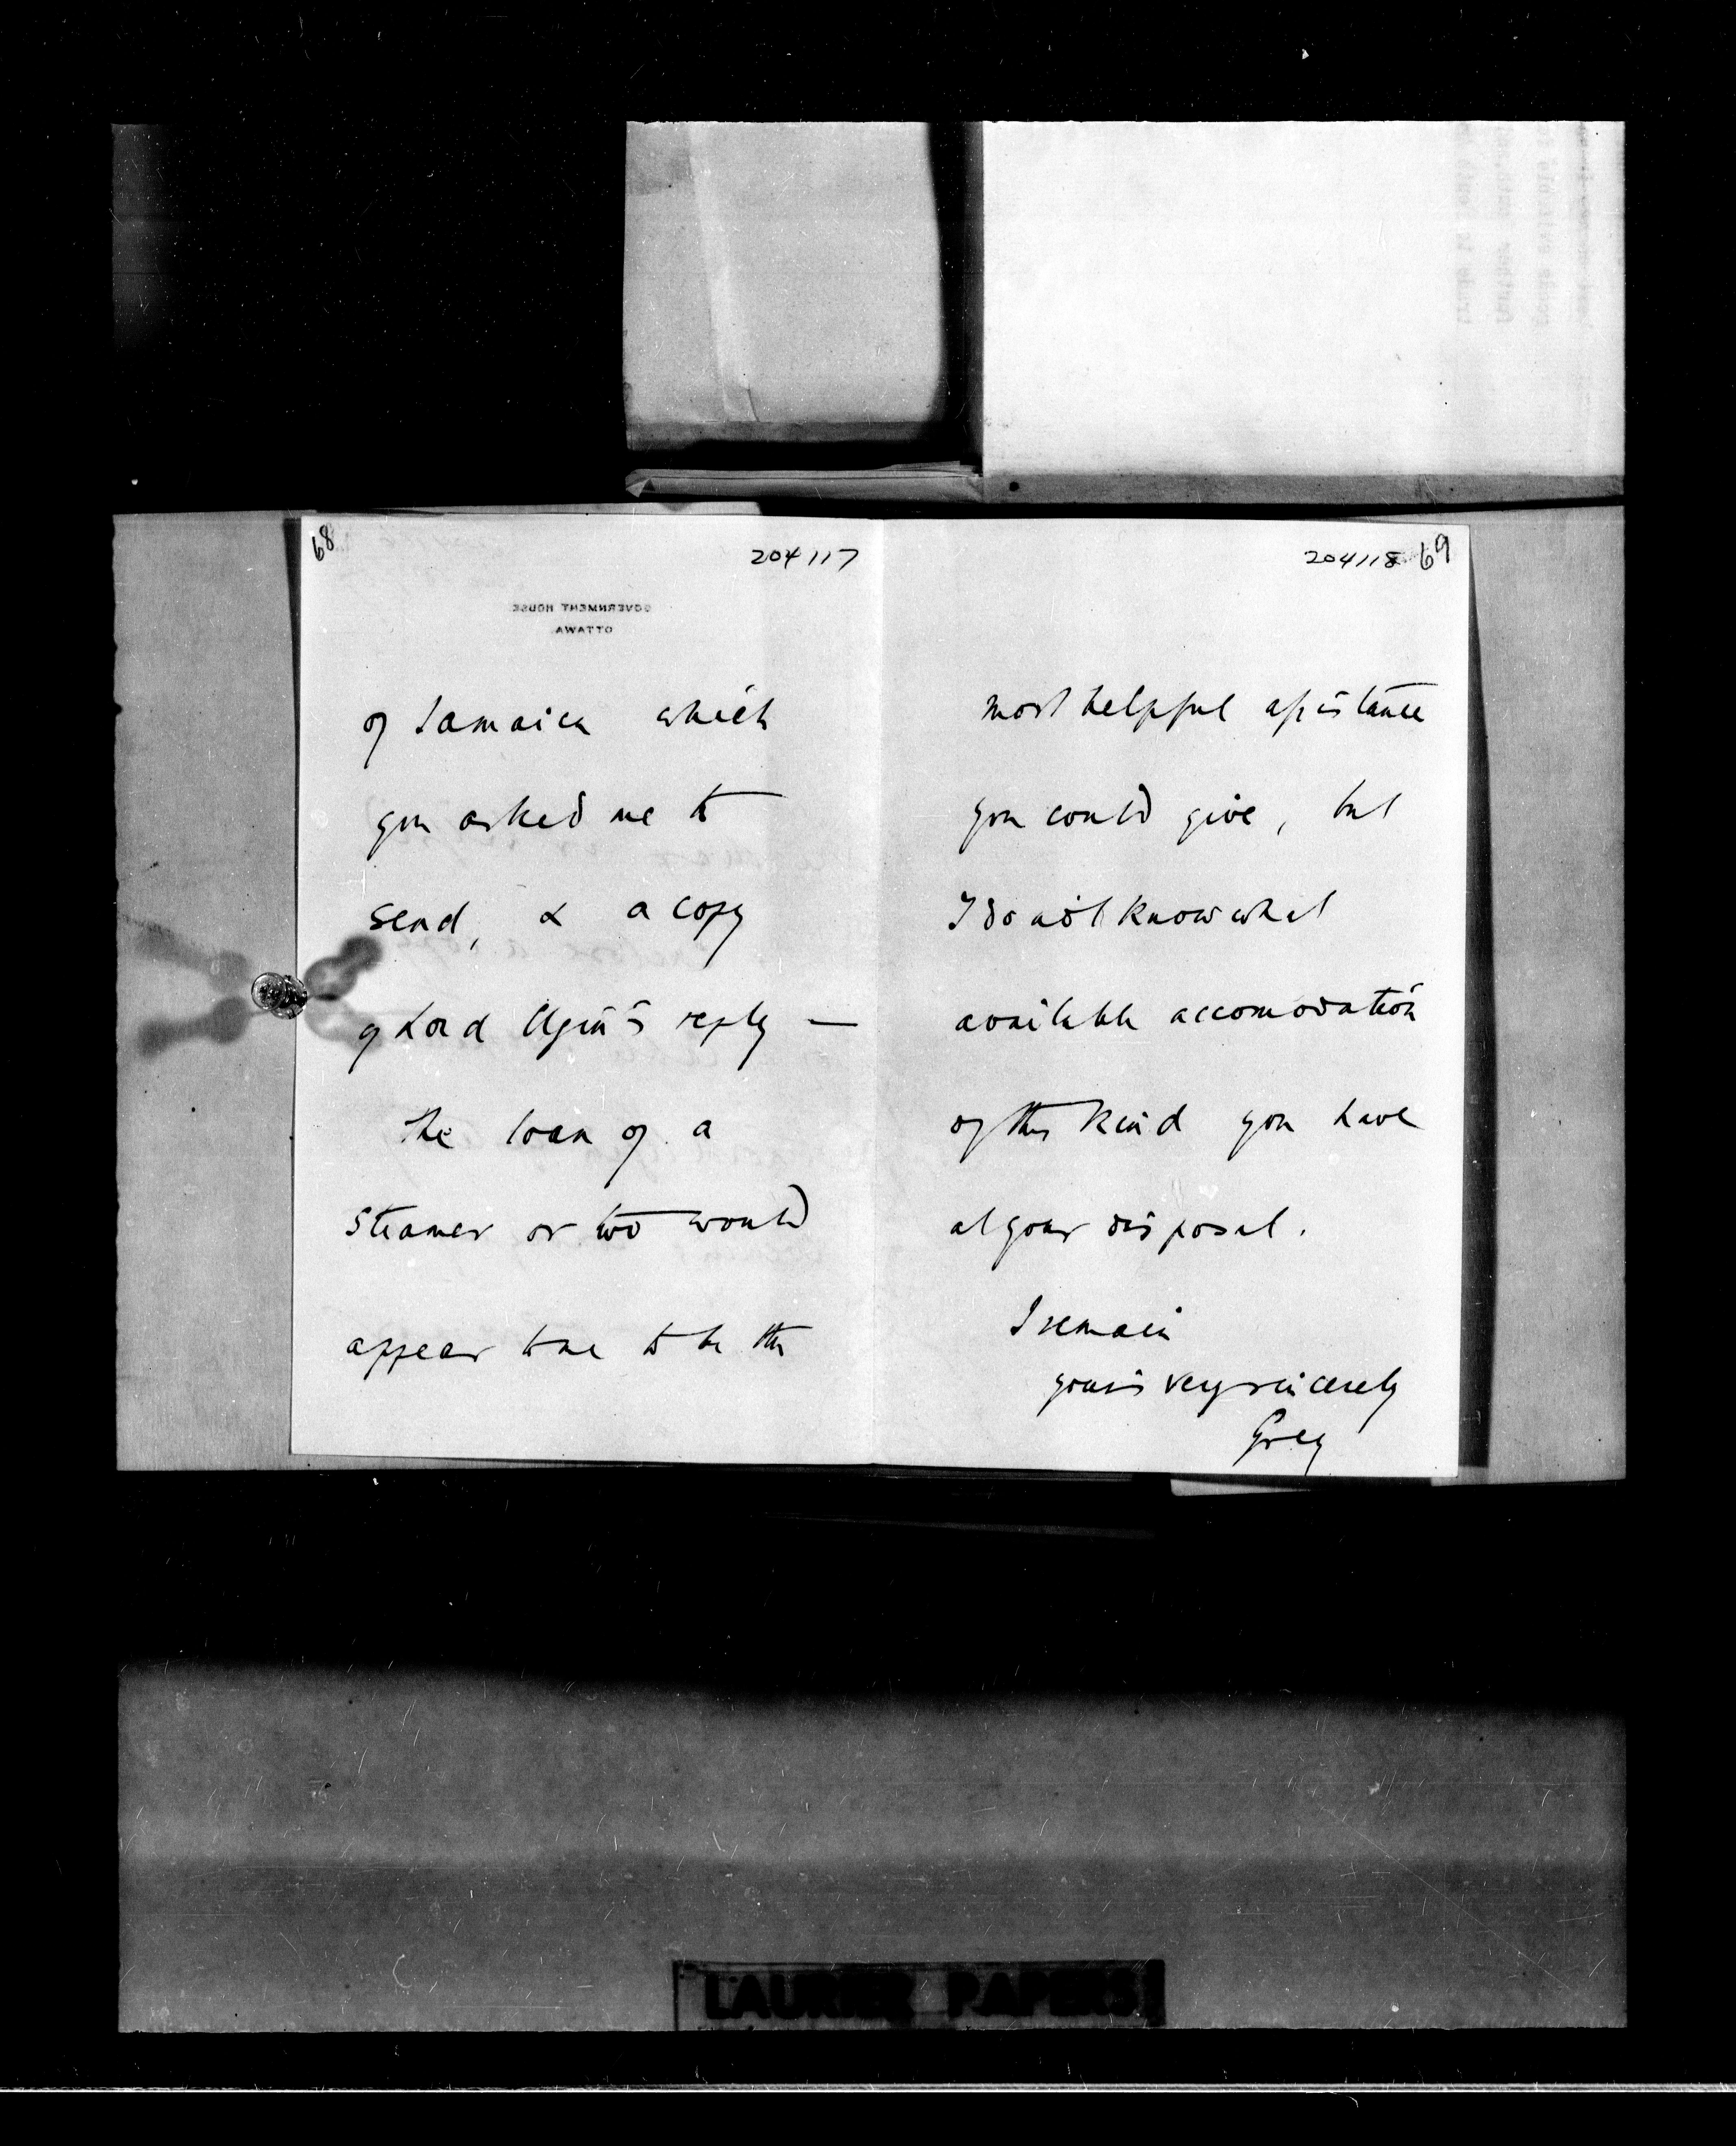 68
204117
GOVERNMENT HOUSE
OTTAWA
of Jamaica which
you asked me to
send, & a copy
of Lord Elgin's reply —
The loan of a
steamer or two would
appear to me to be the
204118 69
most helpful assistance
you could give, but
I do not know what
available accomodation
of this kind you have
at your disposal.
I remain
yours very sincerely
Grey
LAURIER PAPERS